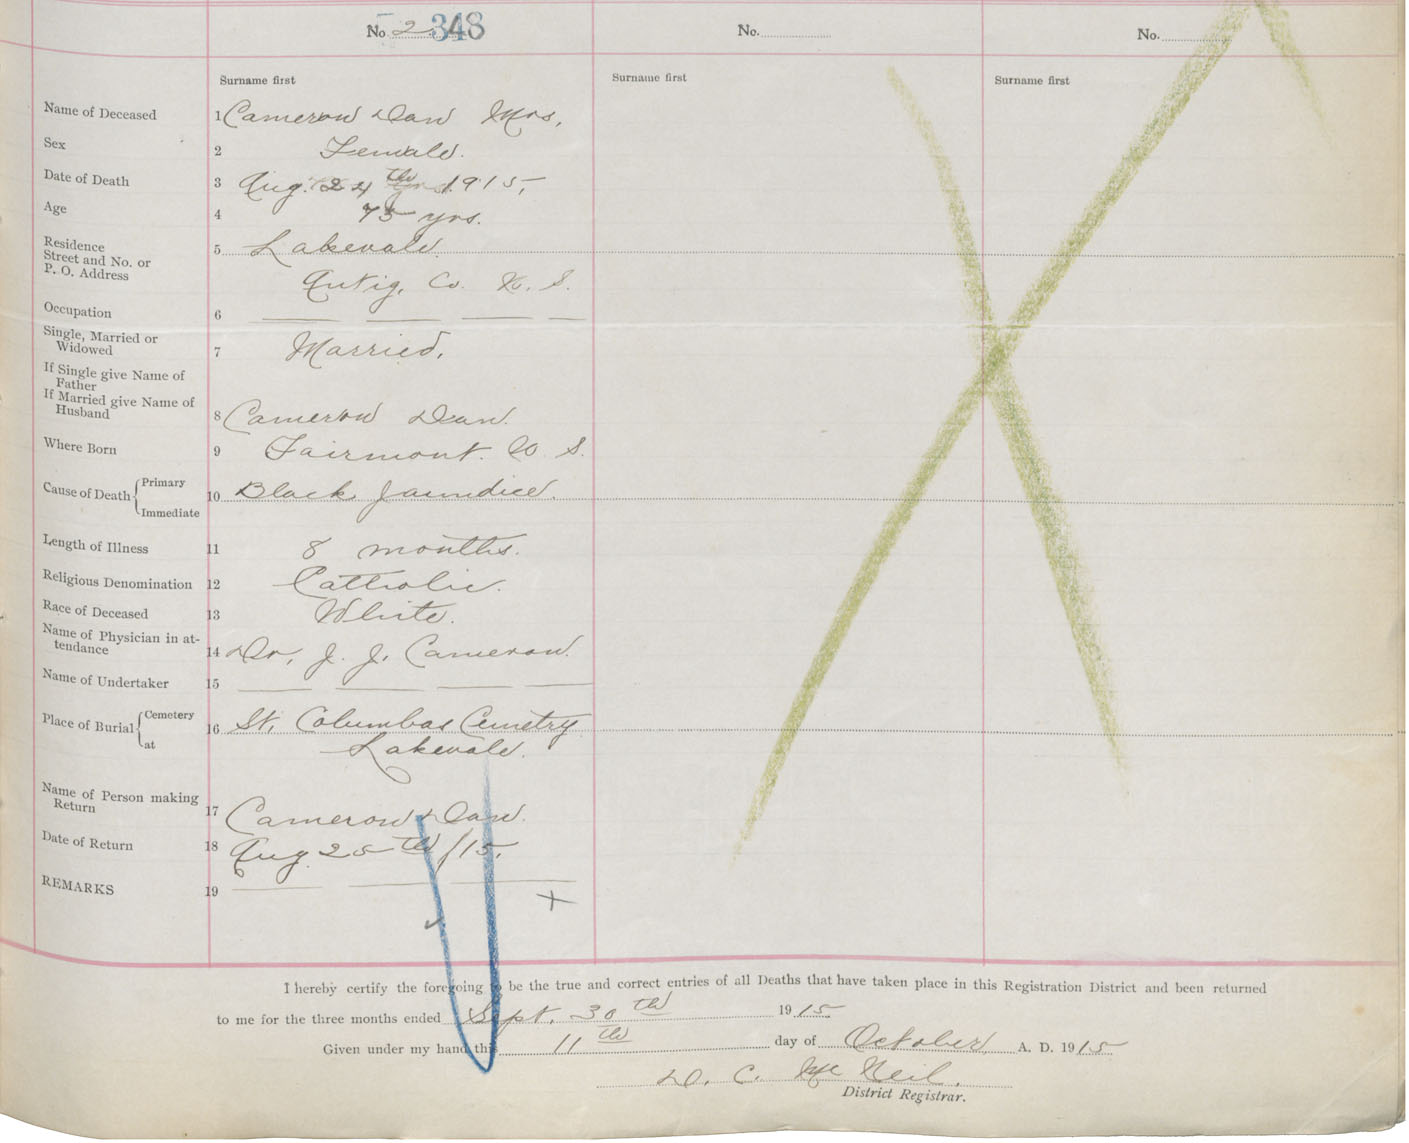 No. 2 348 No. No.
Surname first Surname first Surname first
Name of Deceased 1 Cameron Dan Mrs,
Sex 2 Female.
Date of Death 3 Aug. 24th 1915,
Age 4 75 yrs.
Residence
Street and No. or 5 Lakevale.
P. O. Address
Antig. Co. N. S.
Occupation 6
Single, Married or
Widowed 7 Married,
If Single give Name of
Father
If Married give Name of
Husband 8 Cameron Dan.
Where Born 9 Fairmont. N. S.
Cause of Death Primary 10 Black Jaundice.
Immediate
Length of Illness 11 8 months.
Religious Denomination 12 Catholic.
Race of Deceased 13 White.
Name of Physician in at-
tendance 14 Dr, J. J. Cameron.
Name of Undertaker 15
Place of Burial Cemetery 16 St, Columbas Cemetry
at Lakevale.
Name of Person making
Return 17 Cameron Dan.
Date of Return 18 Aug 25th/15,
REMARKS 19
I hereby certify the foregoing to be the true and correct entries of all Deaths that have taken place in this Registration District and been returned
to me for the three months ended Sept. 30th 1915
Given under my hand this 11th day of October, A. D. 1915
D. C. McNeil.
District Registrar.